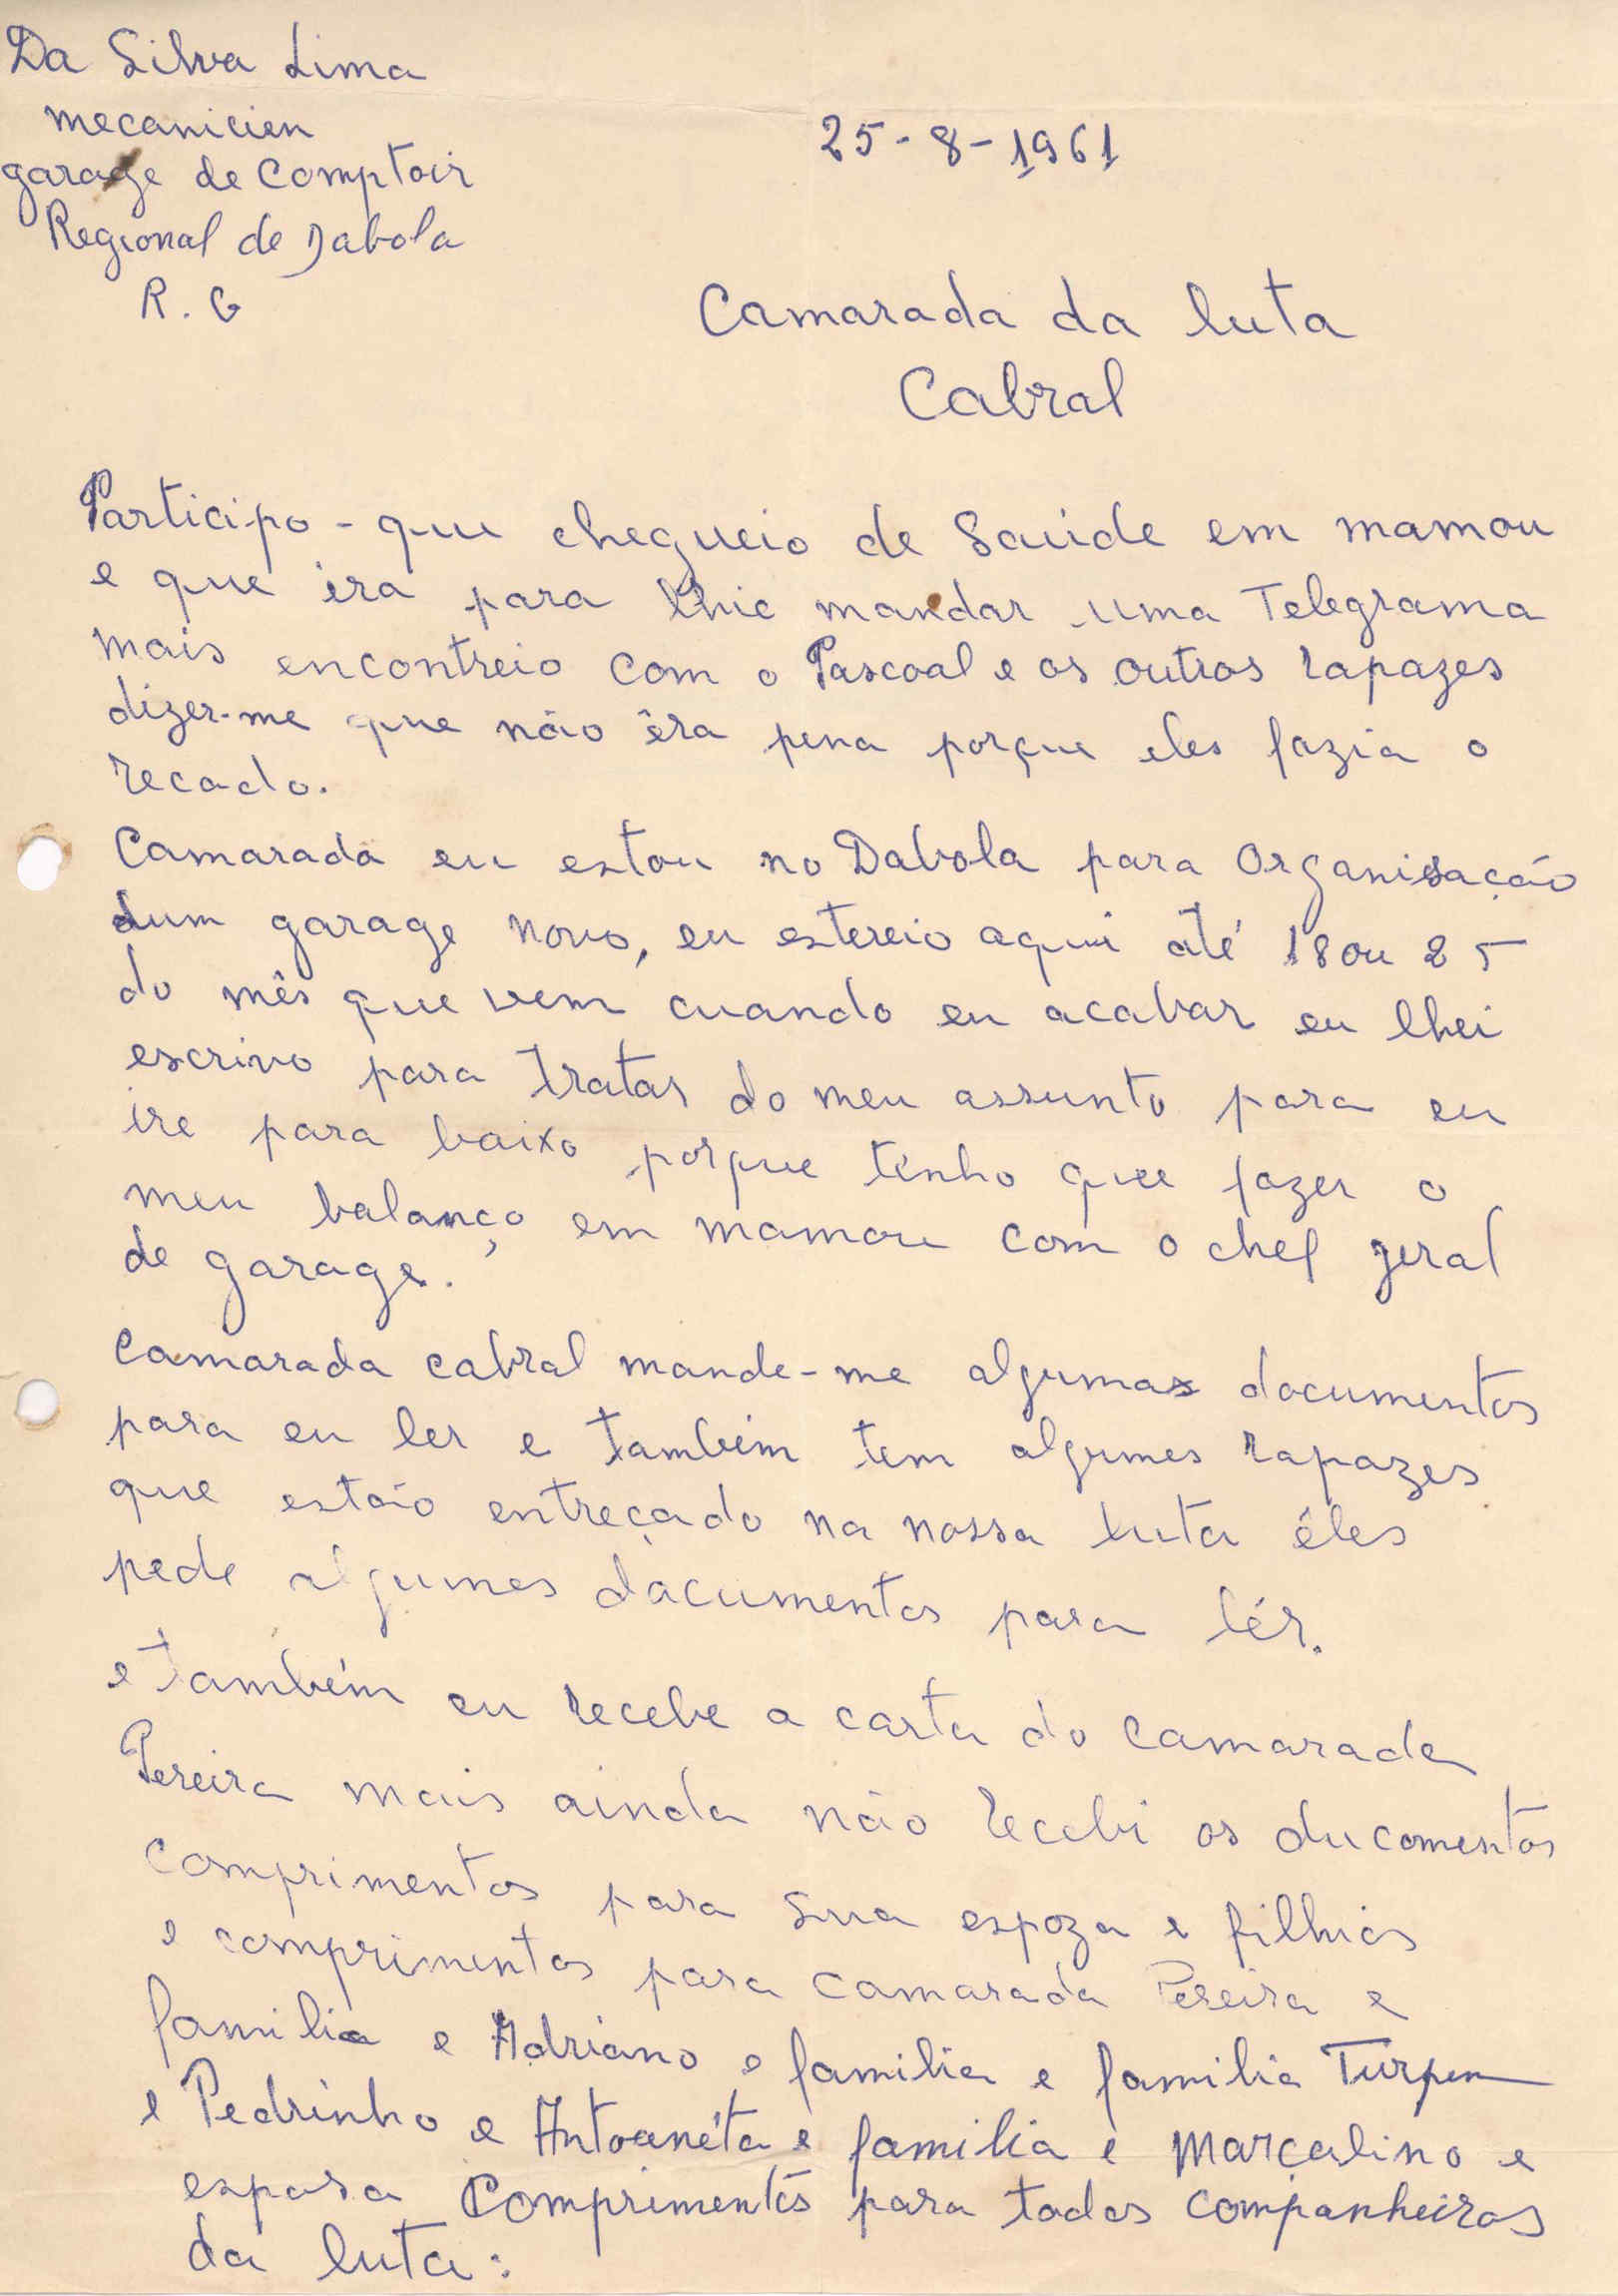 Da Silva Lima
mecanicien
garage de Comptoir
Regional de Dabola
R. G
25-8-1961
Camarada da luta
Cabral
Participo-que chegueio de Saúde em mamou
e que éra para lhie mandar uma Telegrama
mais encontreio com o Pascoal e os outros rapazes
dizer-me que não êra pena porque eles fazia o
recado.
Camarada eu estou no Dabola para Organisação
dum garage novo, eu estereio aqui até 18 ou 25
do mês que vem cuando eu acabar eu lhei
escrivo para tratar do meu assunto para eu
ire para baixo porque tenho que fazer o
meu balanço em mamou com o chef geral
de garage.
Camarada cabral mande-me algumas documentos
para eu ler e também tem algumes rapazes
que estão entreçado na nossa luta éles
pede algumes documentos para lér.
e também eu recebe a carta do Camarada
Pereira mais ainda não recebi os ducomentos
Comprimentos para sua espoza e filhios
e comprimentos para camarada Pereira e
familia e Adriano e familia e familia Turpin
e Pedrinho e Antoanéta e familia e Marçalino e
esposa Comprimentos para todos companheiros
da luta: